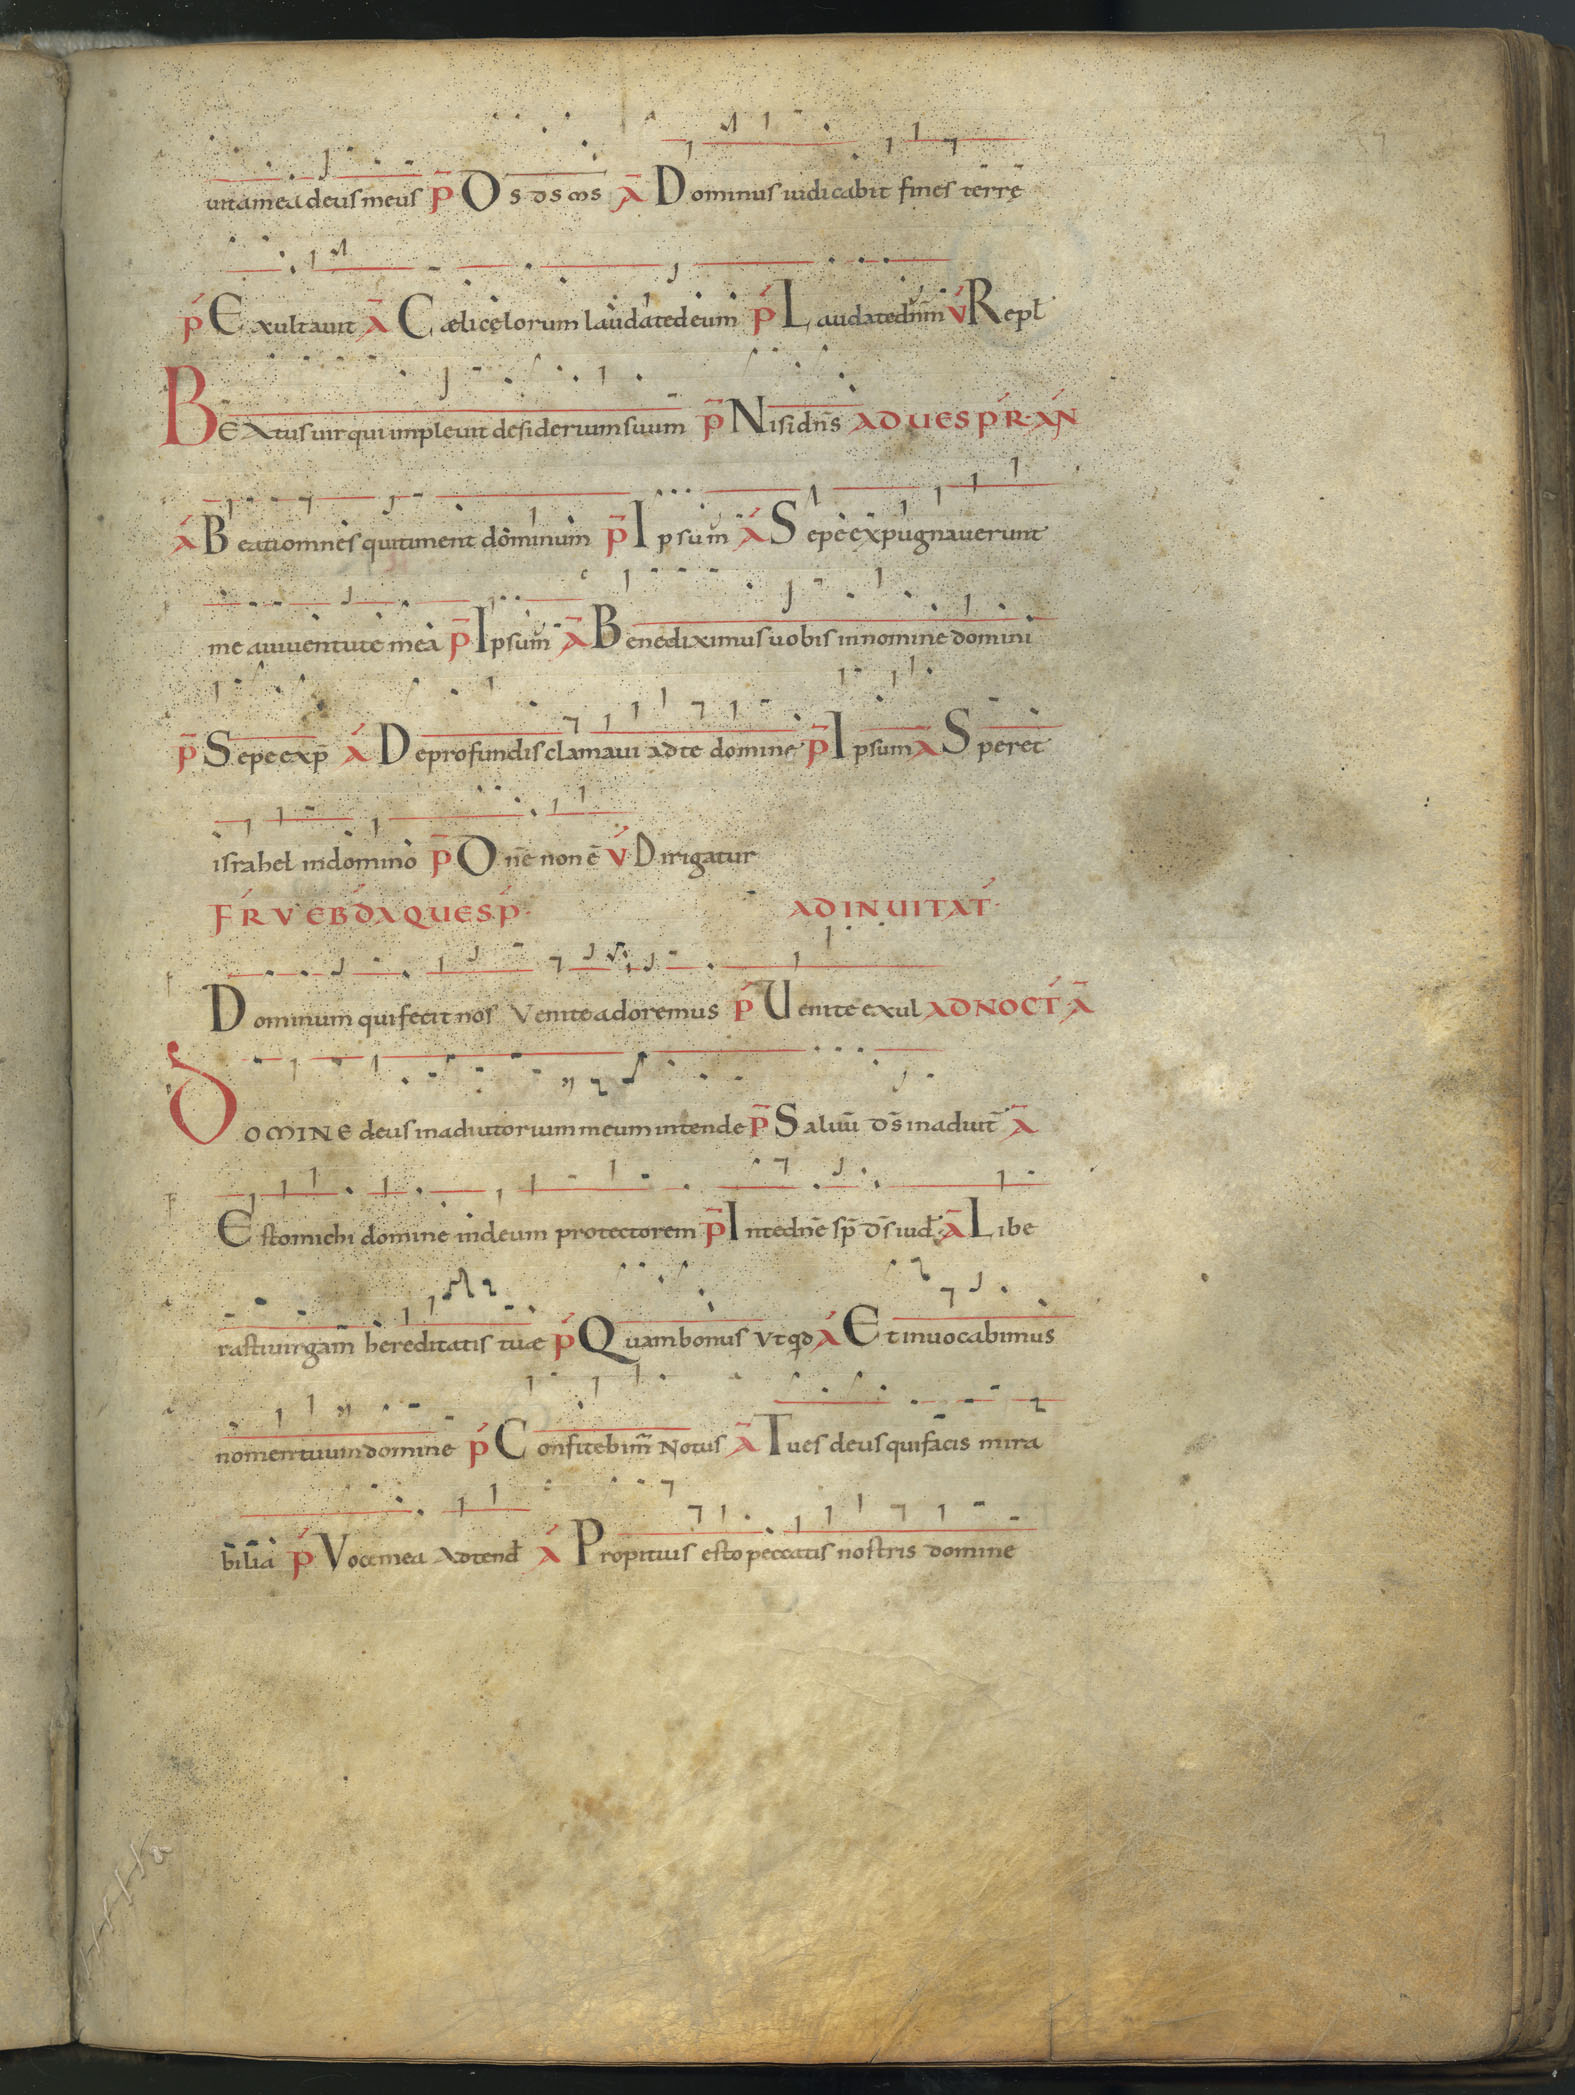 uita mea deus meus p̄ Os d̄s m̄s Ā Dominus iudicabit fines terrę
ṕ Exultauit Ā Cæli cęlorum laudate deum ṕ Laudate dn̄m V́ Repl̄
Beatus uir qui impleuit desiderium suum p̄ Nisi dn̄s AD UESṔR· AŃ
Á Beati omnes qui timent dominum p̄ Ipsum Á Sepe expugnauerunt
me a iuuentute mea p̄ Ipsum Ā Benediximus uobis in nomine domini
p̄ Sepe exp̄ Á De profundis clamaui ad te domine p̄ Ipsum Ā Speret
israhel in domino p̄ Dn̄e non ē V́ Dirigatur
FŔ V EBD́ AQ UESṔ· AD INUITAT́·
Dominum qui fecit nos Venite adoremus ṕ Uenite exul AD NOCT́ Ā
Domine deus in adiutorium meum intende p̄ Saluū d̄s in adiut̄ Ā
Esto michi domine in deum protectorem p̄ Inte dn̄e sp̄ d̄s iud̄· Ā Libe
rasti uirgam hereditatis tuæ ṕ Quam bonus Vt qd Á Et inuocabimus
nomen tuum domine ṕ Confitebim̄ Notus Ā Tu es deus qui facis mira
bilia ṕ Voce mea Adtend̄ Á Propitius esto peccatis nostris domine